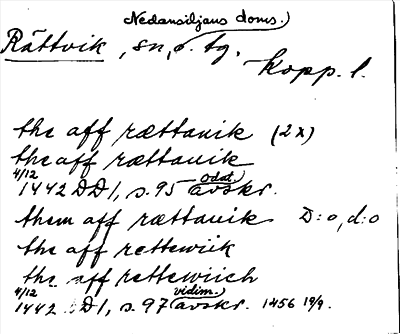 Nedansiljans doms.)
Rättvik, sn, o. tg.
Kopp. l.
the aff rættauik (2x)
the aff rættauik
4/12 odat.)
1442 DD1, s. 95 avskr.
them aff rættauik D:o, d:o
the aff rettewiik
the aff rettewiich
4/12 vidim.)
1442 DD1, s. 97 avskr. 1456 19/9.